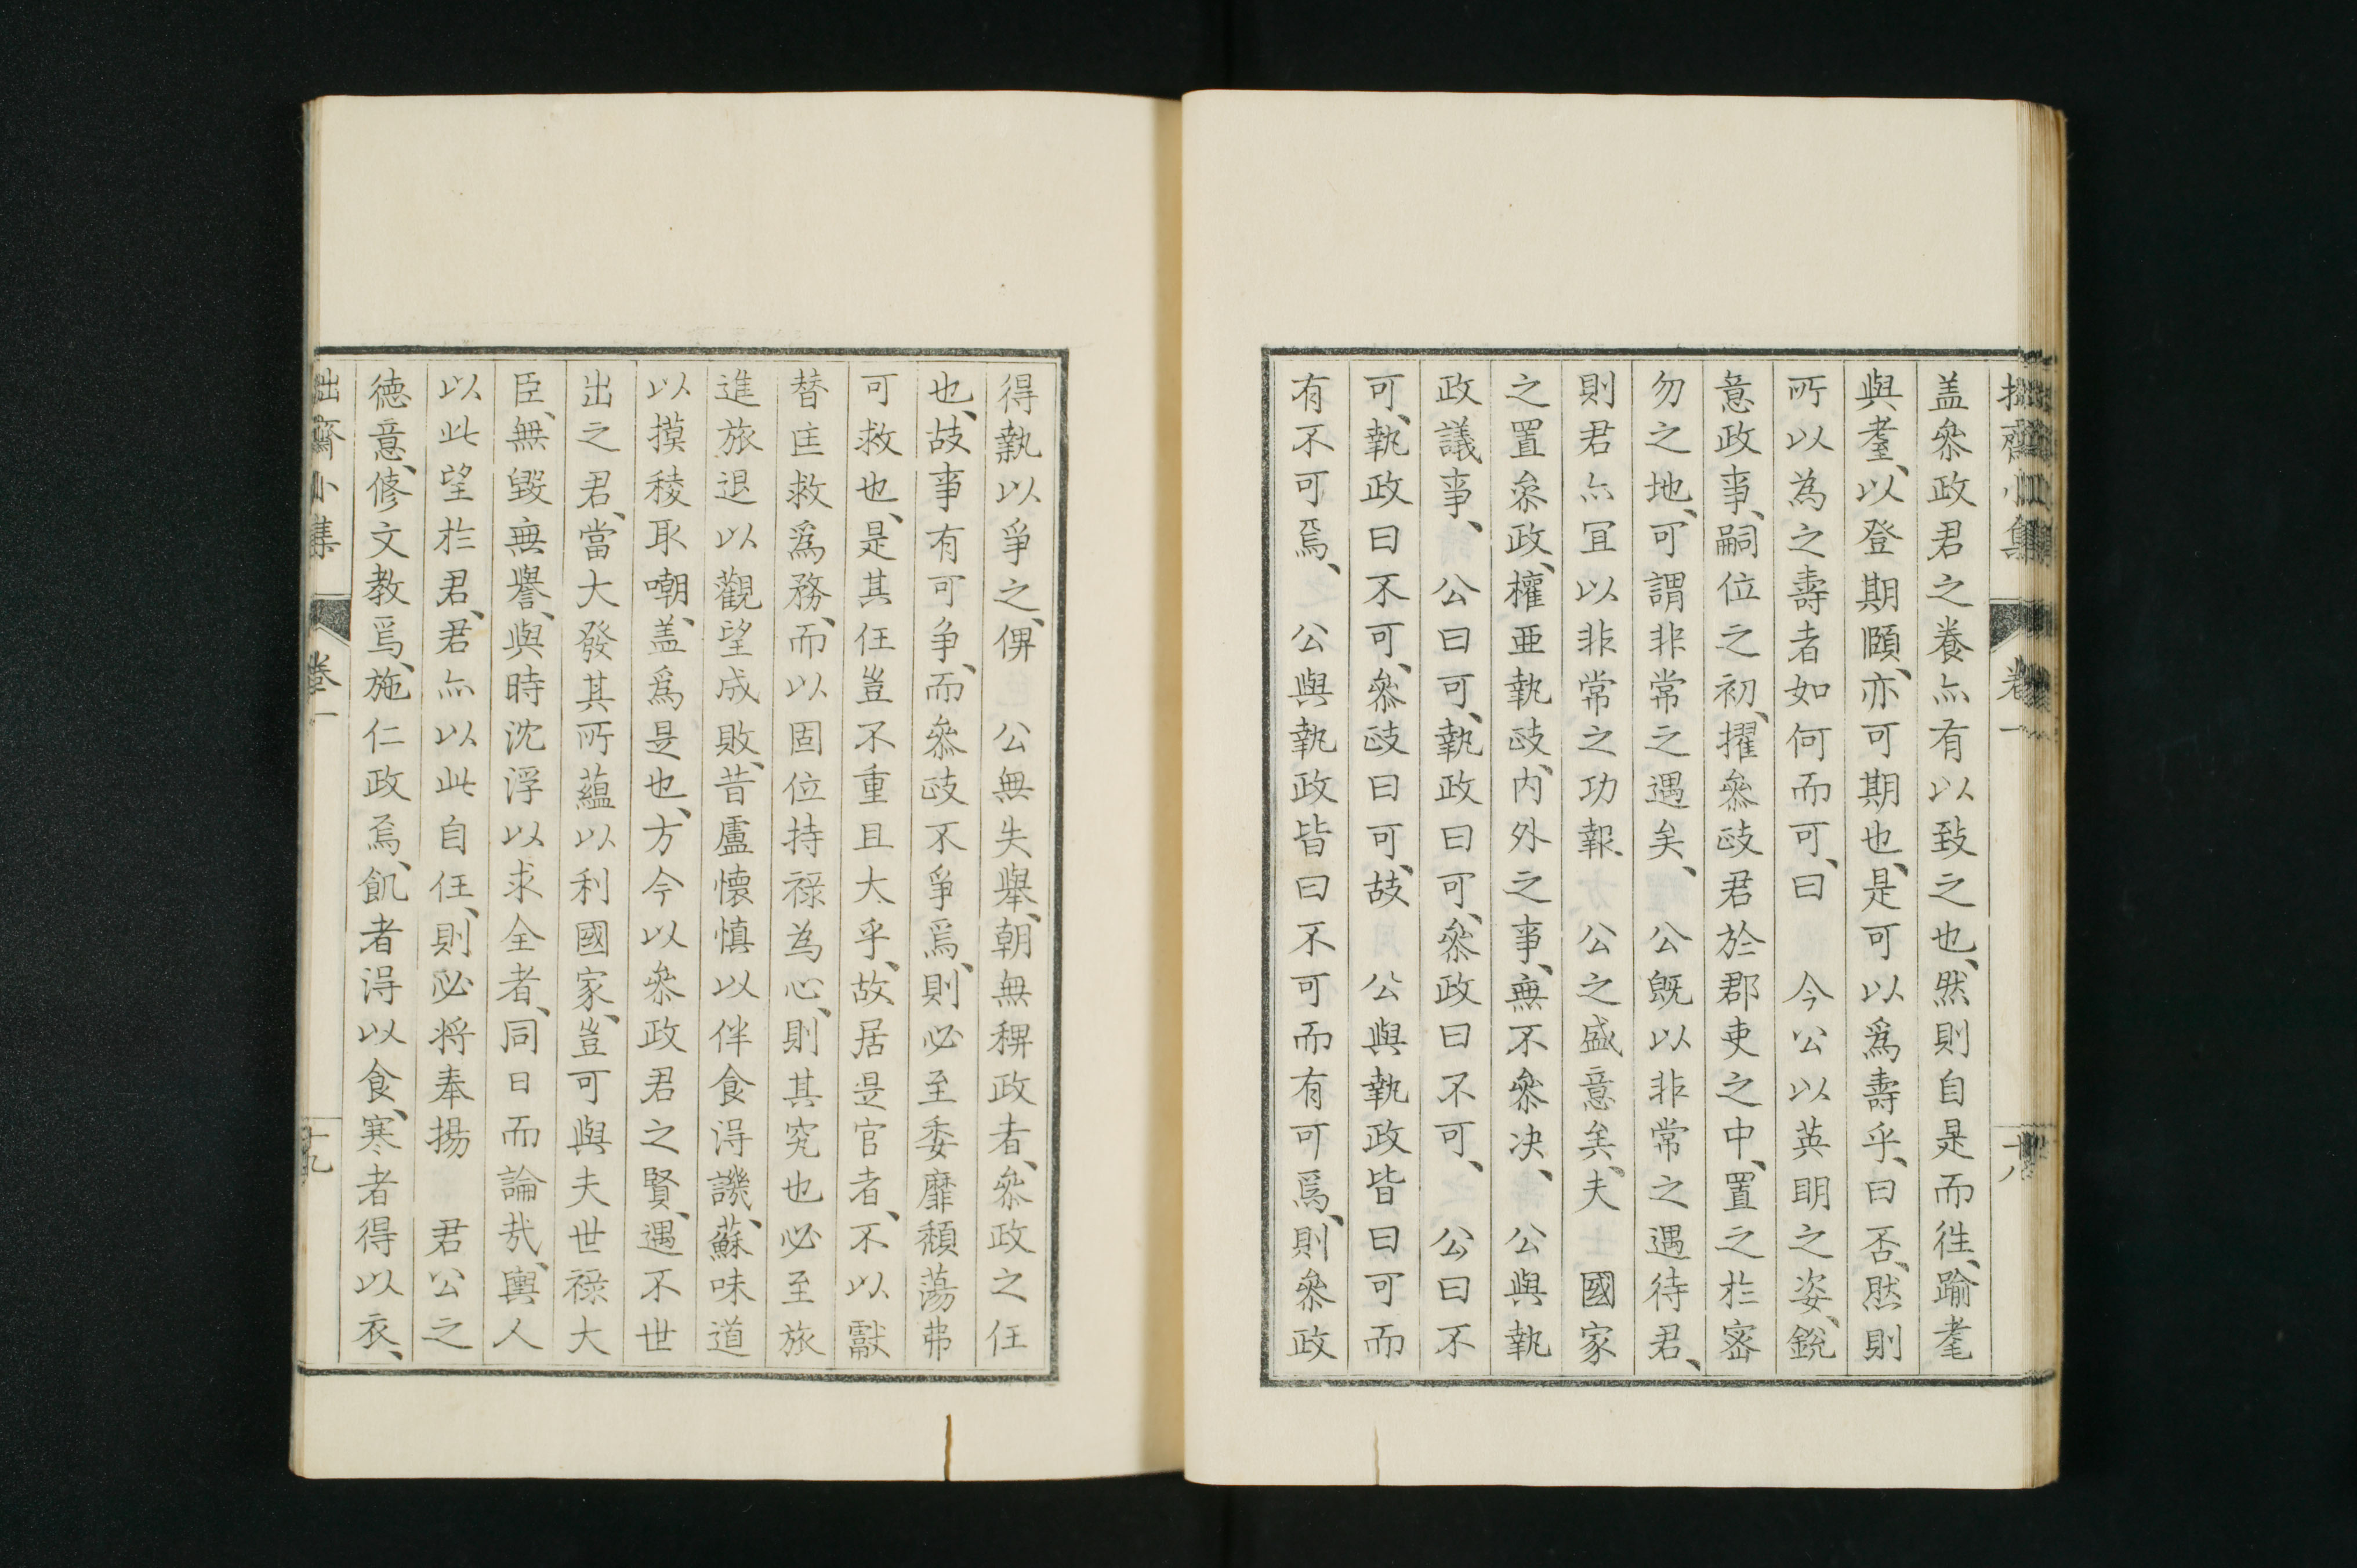 拙齋小集 卷一 十八
盖叅政君之養亦有以致之也、然則自是而徃、踰耄
與耋、以登期頤、亦可期也、是可以爲壽乎、曰否、然則
所以為之壽者如何而可、曰　今公以英明之姿、銳
意政事、嗣位之初、擢叅政君於郡吏之中、置之於密
勿之地、可謂非常之遇矣、　公既以非常之遇待君、
則君亦宜以非常之功報　公之盛意矣、夫　國家
之置叅政、權亜執政、内外之事、無不叅决、　公與執
政議事、　公曰可、執政曰可、叅政曰不可、　公曰不
可、執政曰不可、叅政曰可、故　公與執政皆曰可而
有不可焉、　公與執政皆曰不可而有可焉、則叅政
得執以爭之、俾　公無失舉、朝無稗政者、叅政之任
也、故事有可争、而叅政不爭焉、則必至委靡頽蕩弗
可救也、是其任豈不重且大乎、故居是官者、不以獻
替匡救爲務、而以固位持祿為心、則其究也必至旅
進旅退以觀望成敗、昔盧懷慎以伴食得譏、蘇味道
以摸稜取嘲、盖爲是也、方今以叅政君之賢、遇不世
出之君、當大發其所蘊以利國家、豈可與夫世祿大
臣、無毀無譽、與時沈浮以求全者、同日而論哉、輿人
以此望於君、君亦以此自任、則必将奉揚　君公之
德意、修文教焉、施仁政焉、飢者得以食、寒者得以衣、
拙齋小集 卷一 十九